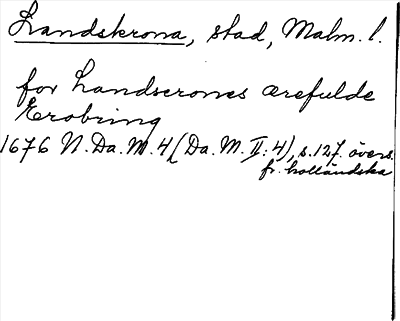 Landskrona, stad, Malm. l.
for Landscrones ærefulde
Erobring
1676 N. Da. M. 4 (Da. M. II: 4), s. 127. övers.
fr. holländska